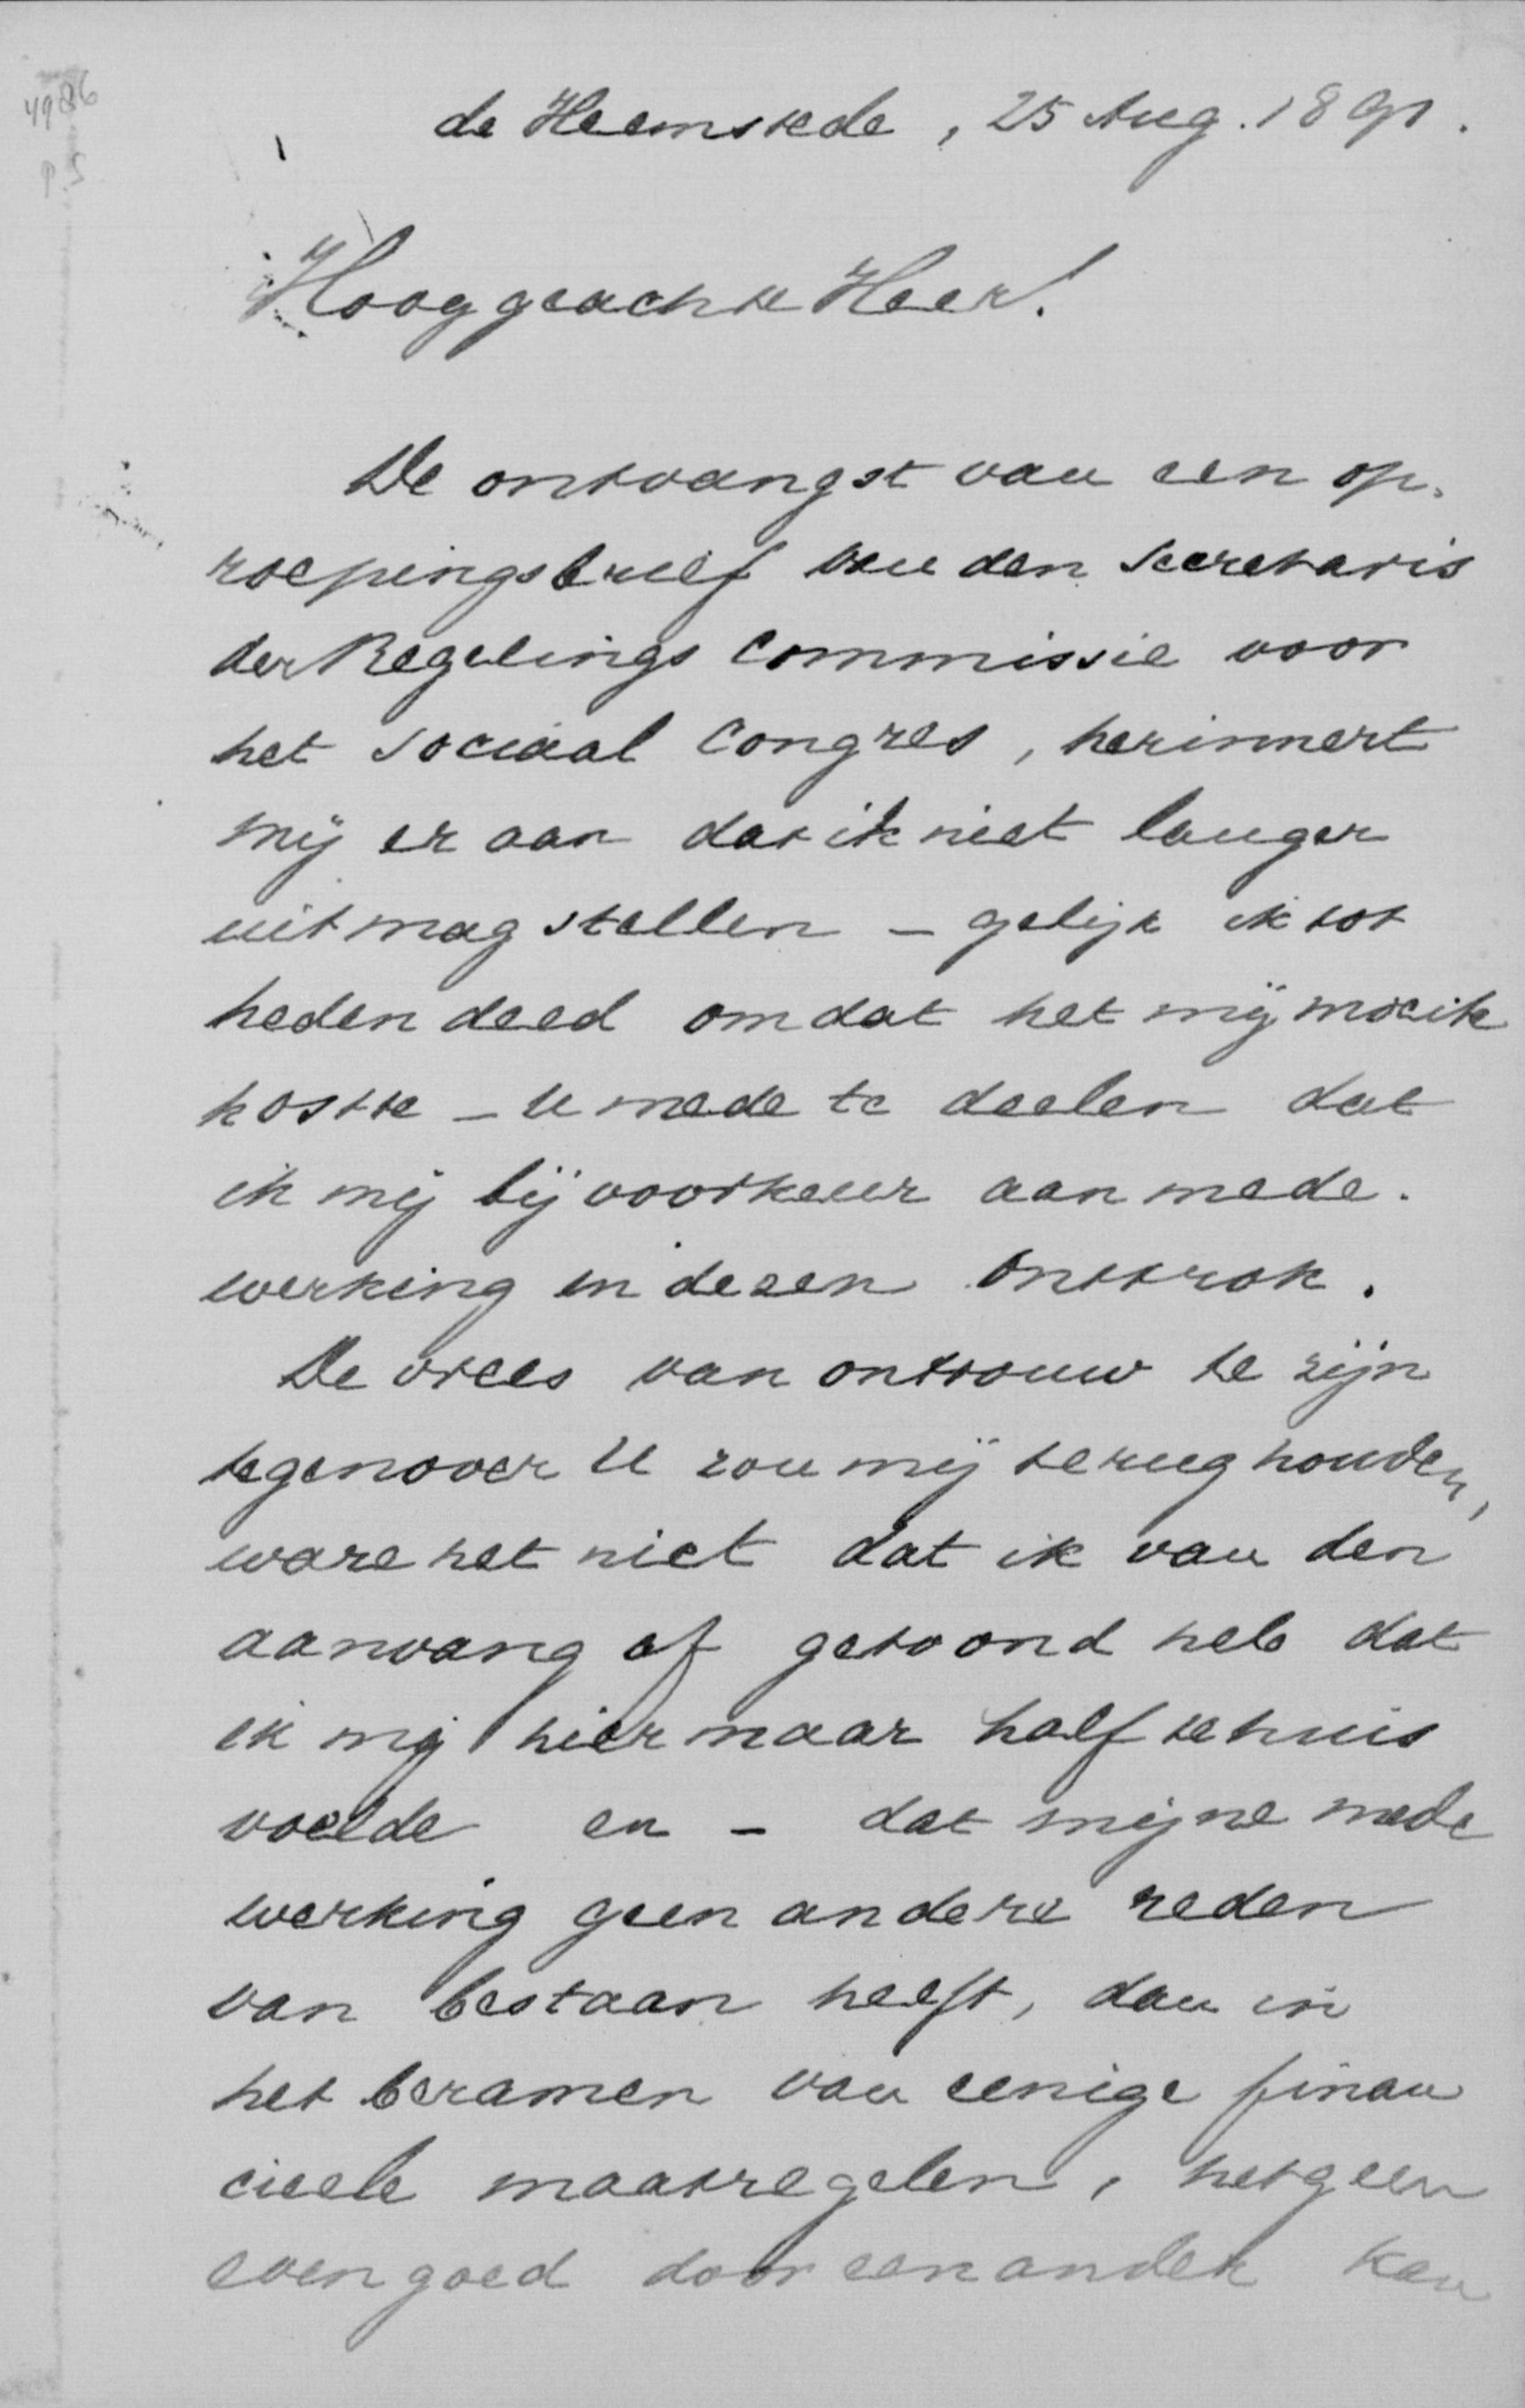 4986
p. 5
de Heemstede, 25 Aug. 1891.
Hooggeachte Heer!
De ontvangst van een op-
roepingsbrief van den Secretaris
der Regelings Commissie voor
het Sociaal Congres, herinnert
mij er aan dat ik niet langer
uit mag stellen - gelijk ik tot
heden deed omdat het mij moeite
kostte - U mede te deelen dat
ik mij bij voorkeur aan mede-
werking in dezen onttrok.
De vrees van ontrouw te zijn
tegenover U zou mij terughouden,
ware het niet dat ik van den
aanvang af getoond heb dat
ik mij hier maar half tehuis
voelde en - dat mijne mede
werking geen andere reden
van bestaan heeft, dan in
het beramen van eenige finan
cieele maatregelen, hetgeen
even goed door een ander kan